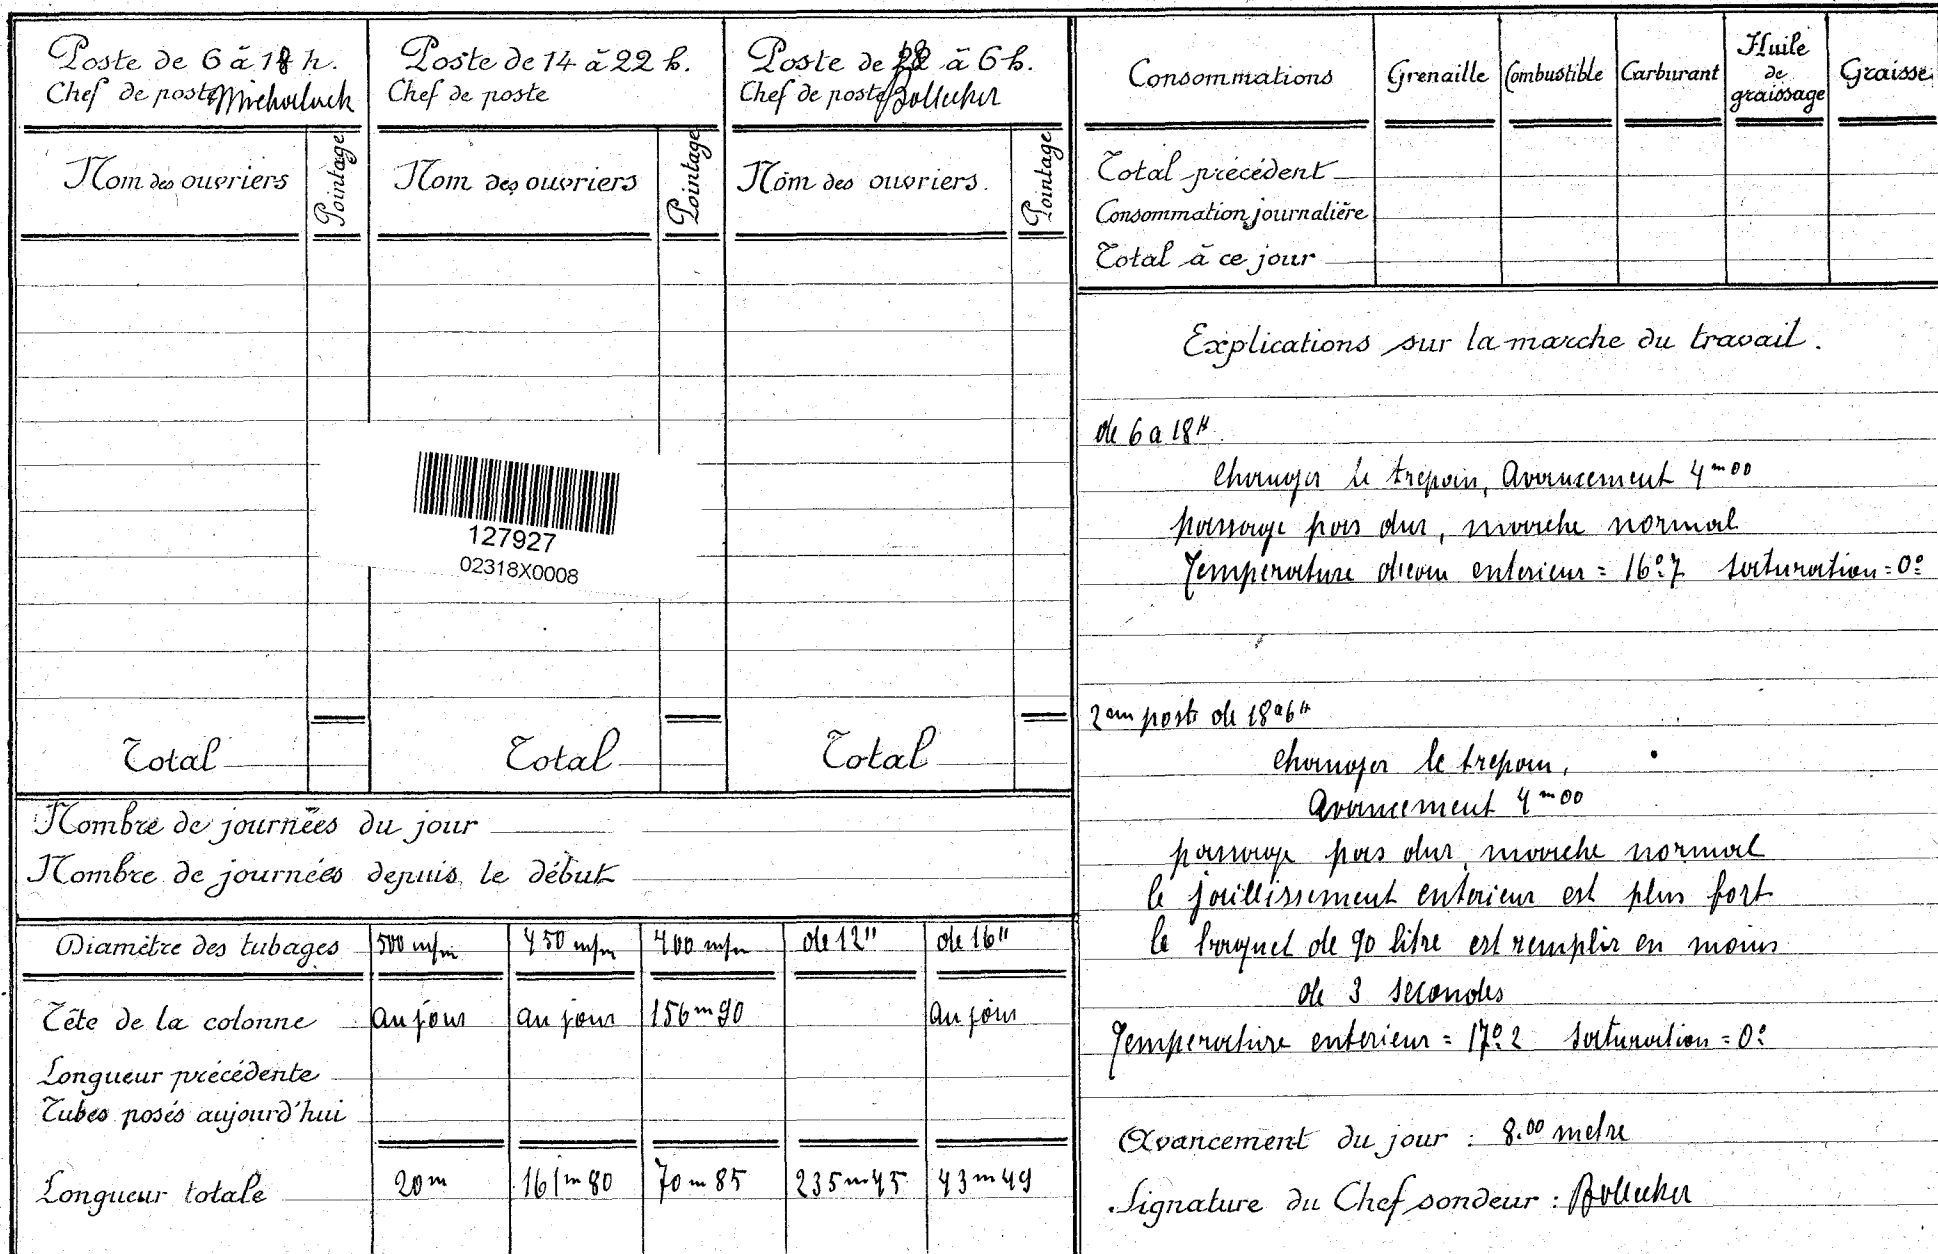 Poste de 6 à 18 h.
Chef de poste Michalack
Nom des ouvriers
Pointage
Total
Poste de 14 à 22 h.
Chef de poste
Nom des ouvriers
Pointage
Total
Poste de 18 à 6 h.
Chef de poste Bollecker
Nom des ouvriers.
Pointage
Total
127927
02318X0008
Nombre de journées du jour
Nombre de journées depuis le début
Diamètre des tubages 500 m/m 450 m/m 400 m/m de 12" de 16"
Tête de la colonne au jour au jour 156 m 90 au jour
Longueur précédente
Tubes posés aujourd'hui
Longueur totale 20 m 161 m 80 70 m 85 235 m 45 43 m 49
Consommations Grenaille Combustible Carburant Huile de graissage Graisse
Total précédent
Consommation journalière
Total à ce jour
Explications sur la marche du travail.
de 6 a 18 H
changer le trepan, Avancement 4 m 00
passage pas dur, marche normal
Temperature dieau enterieur = 16°7 saturation = 0°
2em poste de 18 a 6 H
changer le trepan,
Avancement 4 m 00
passage pas dur, marche normal
le jaillissement enterieur est plus fort
le baquet de 90 litre est remplir en moins
de 3 secondes
Temperature enterieur = 17°2 saturation = 0°
Avancement du jour : 8.00 metre
Signature du Chef sondeur : Bollecker